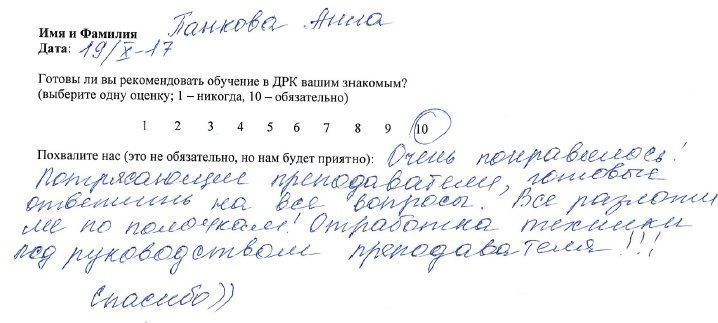 Имя и Фамилия Панкова Анна
Дата: 19/X-17
Готовы ли вы рекомендовать обучение в ДРК вашим знакомым?
(выберите одну оценку; 1 – никогда, 10 – обязательно)
1 2 3 4 5 6 7 8 9 10
Похвалите нас (это не обязательно, но нам будет приятно): Очень понравилось!
Потрясающие преподаватели, готовые
ответить на все вопросы. Все разложи
ли по полочкам! Отработка техники
под руководством преподавателя!!!
Спасибо))